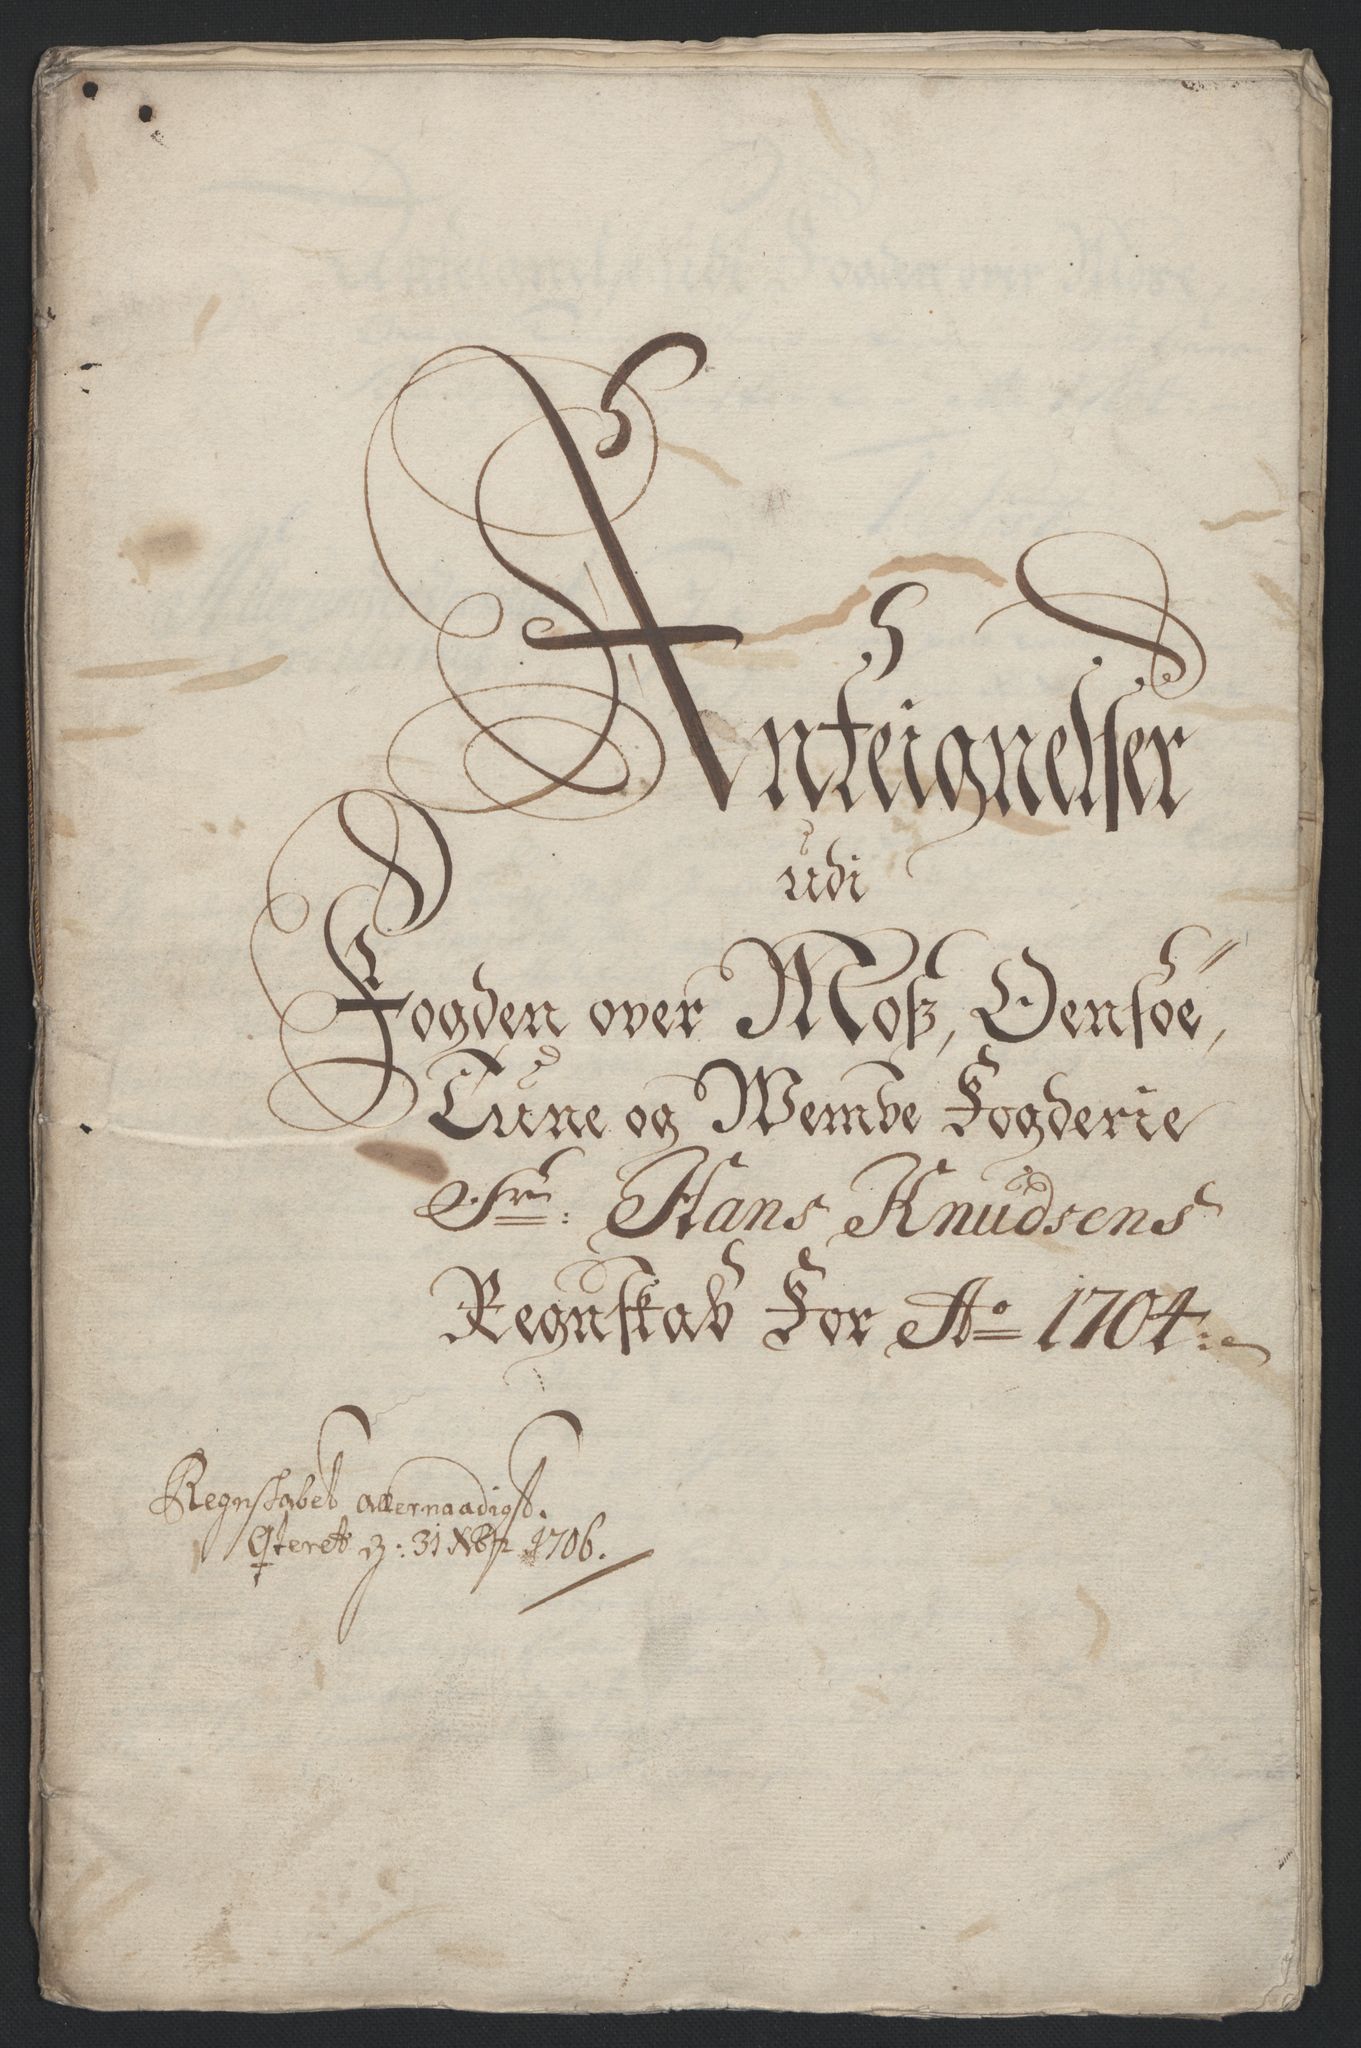 Anteignelser
udi
Fogden over Moß, Oensøe,
Tune og Wembe Fogderie
Sr: Hans Knudsens
Regnskab For Ao 1704:
Regnskabet allernaadigst
Qteret 31 1706.